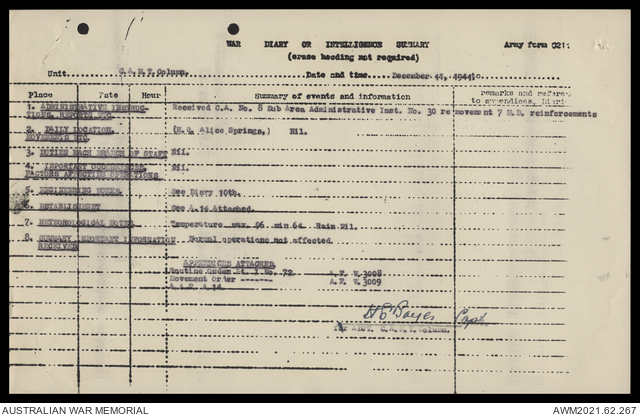 WAR DIARY OR INTELLIGENCE SUMMARY Army form C211
(erase heading not required)
Unit C.A.M.T. Column. Date and time December 11, 1944
Place Date Hour Summary of events and information remarks and
to appendices,
1. ADMINISTRATIVE Received C.A. No. 8 Sub Area Administrative Inst. No. 30 re movement 7 M.D. reinforcements
2. DAILY LOCATION, (H.Q. Alice Springs,) Nil.
3. DUTIES EACH BRANCH OF STAFF Nil.
4. IMPORTANT Nil.
FACTORS AFFECTING OPERATIONS
5. ENGINEERING WORKS. See Diary 10th.
6. ESTABLISHMENT See A.14 Attached.
7. METEOROLOGICAL NOTES Temperature max. 96 min.64 Rain Nil.
8. SUMMARY IMPORTANT INFORMATION Normal operations not affected.
RECEIVED
APPENDICES ATTACHED.
Routine Order Pt. I No. 72 A.F. W.3008
Movement Order A.F. W.3009
A.14
Capt
Column.
AUSTRALIAN WAR MEMORIAL AWM2021.62.267